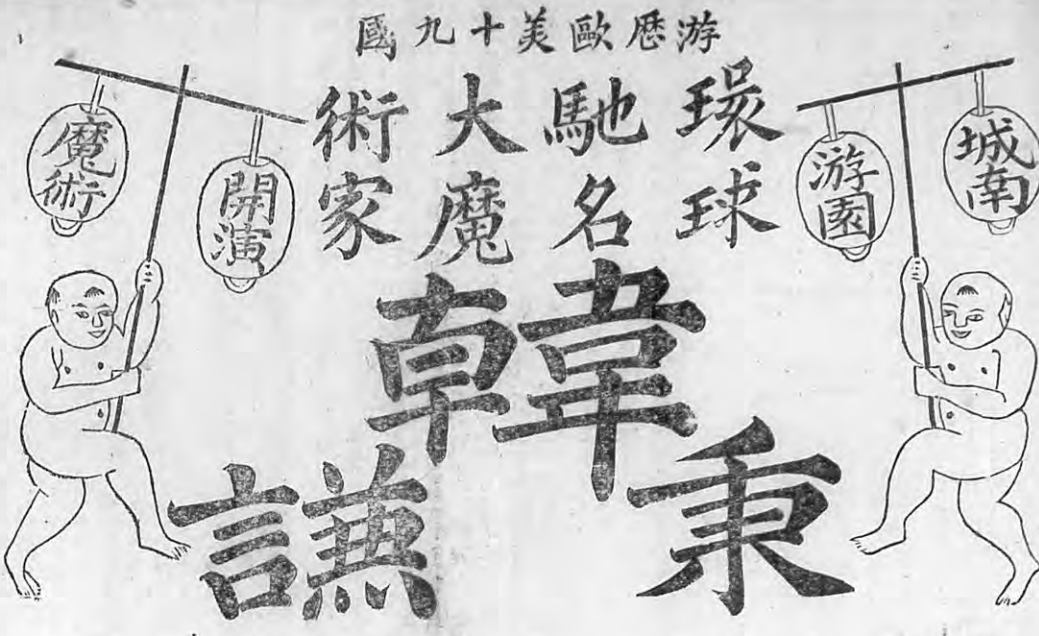 游歷歐美十九國
環球
馳名
大魔
術家
韓秉謙
城南
游園
開演
魔術